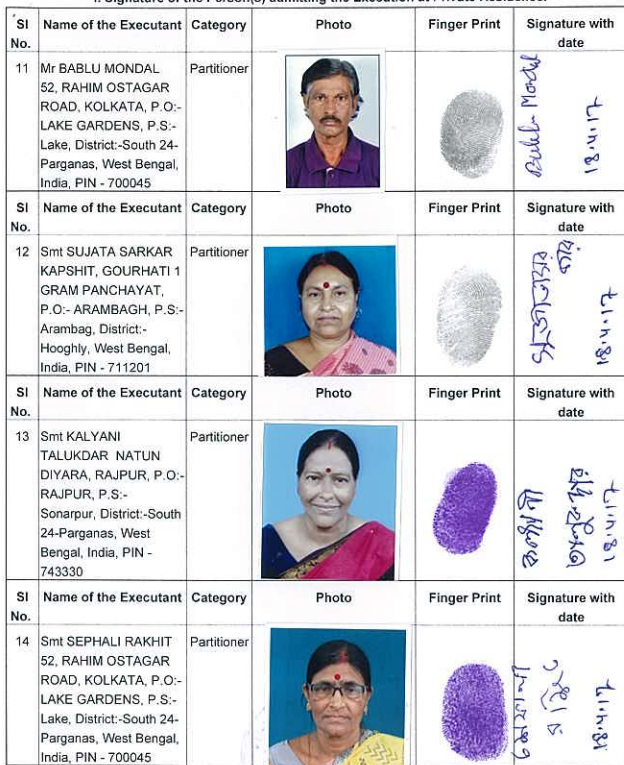 I. Signature of the Person(s) admitting the Execution at Private Residence.
SI No. Name of the Executant Category Photo Finger Print Signature with date
11 Mr BABLU MONDAL Partitioner
52, RAHIM OSTAGAR
ROAD, KOLKATA, P.O:-
LAKE GARDENS, P.S:-
Lake, District:-South 24-
Parganas, West Bengal,
India, PIN - 700045
Bablu Mondal
18.4.17
SI No. Name of the Executant Category Photo Finger Print Signature with date
12 Smt SUJATA SARKAR Partitioner
KAPSHIT, GOURHATI 1
GRAM PANCHAYAT,
P.O:- ARAMBAGH, P.S:-
Arambag, District:-
Hooghly, West Bengal,
India, PIN - 711201
18.4.17
SI No. Name of the Executant Category Photo Finger Print Signature with date
13 Smt KALYANI Partitioner
TALUKDAR NATUN
DIYARA, RAJPUR, P.O:-
RAJPUR, P.S:-
Sonarpur, District:-South
24-Parganas, West
Bengal, India, PIN -
743330
18.4.17
SI No. Name of the Executant Category Photo Finger Print Signature with date
14 Smt SEPHALI RAKHIT Partitioner
52, RAHIM OSTAGAR
ROAD, KOLKATA, P.O:-
LAKE GARDENS, P.S:-
Lake, District:-South 24-
Parganas, West Bengal,
India, PIN - 700045
18.4.17